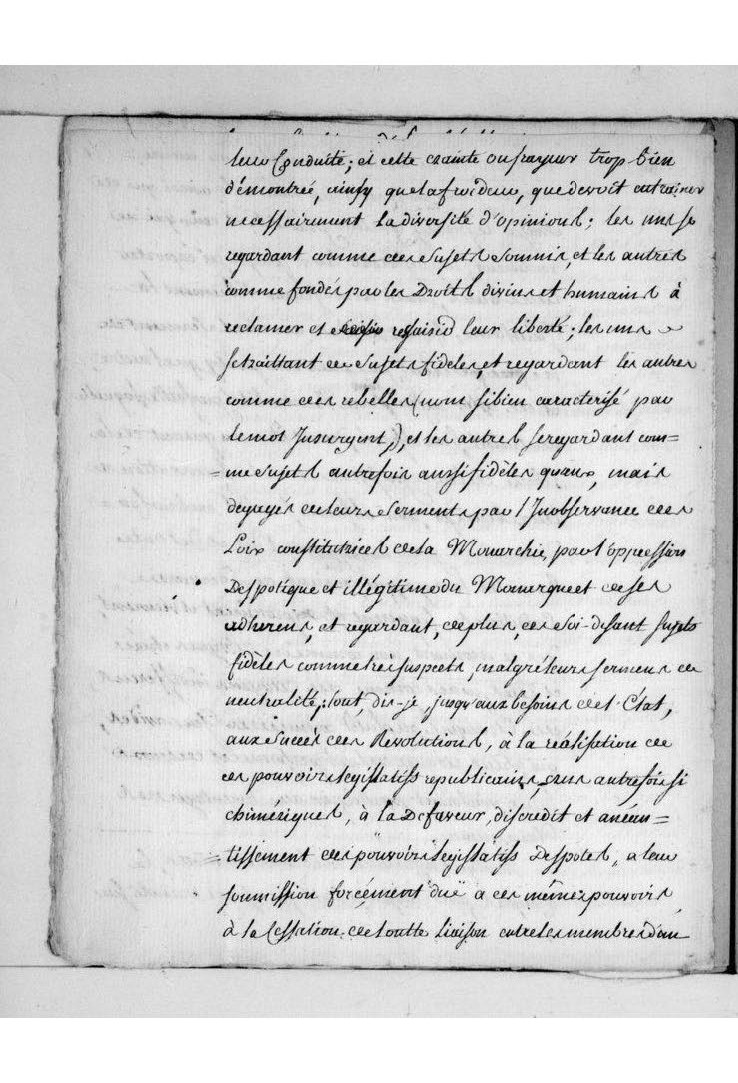 leur Conduite; et cette crainte ou frayeur trop bien
démontrée, ainsy que la froideur, que devoit entrainer
necessairement la diversité d'opinions; les uns se
regardant comme des sujets soumis, et les autres
comme fondés par les Droits divins et humains à
reclamer et ressaisir leur liberté; les uns
se traittant de sujets fideles, et regardant les autres
comme des rebelles (nom si bien caracterisé par
le mot Insurgent,), et les autres se regardant com=
=me sujets autrefois aussi fidèles qu'eux, mais
degagés de leurs serments par l'Inobservance des
Loix constitutrices de la Monarchie, par l'oppression
Despotique et illégitime du Monarque et de ses
adherens, et regardant, de plus, ces soi-disant sujets
fidèles comme très suspects, malgré leurs sermens de
neutralité; tout, dis-je, jusqu'aux besoins de l'État,
aux succès des Revolutions, à la réalisation de
ces pouvoirs legislatifs republicains, crus autrefois si
chimériques, à la Defaveur, discredit et anéan=
=tissement des pouvoirs legislatifs Despotes, a leur
soumission forcément düe a ces mêmes pouvoirs,
à la Cessation de toutte liaison entre les membres d'un